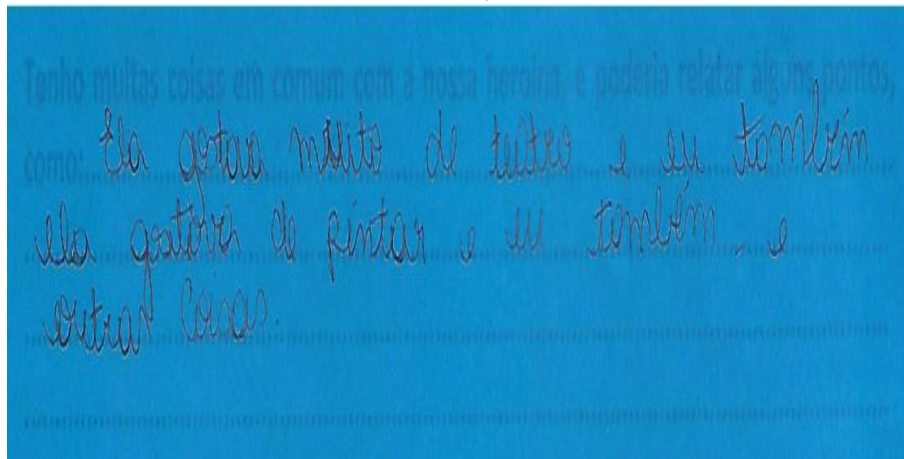 Tenho muitas coisas em comum com a nossa heroína, e poderia relatar alguns pontos,
como: Ela gostava muito de teatro e eu também
ela gostava de pintar e eu também e
outras coisas.